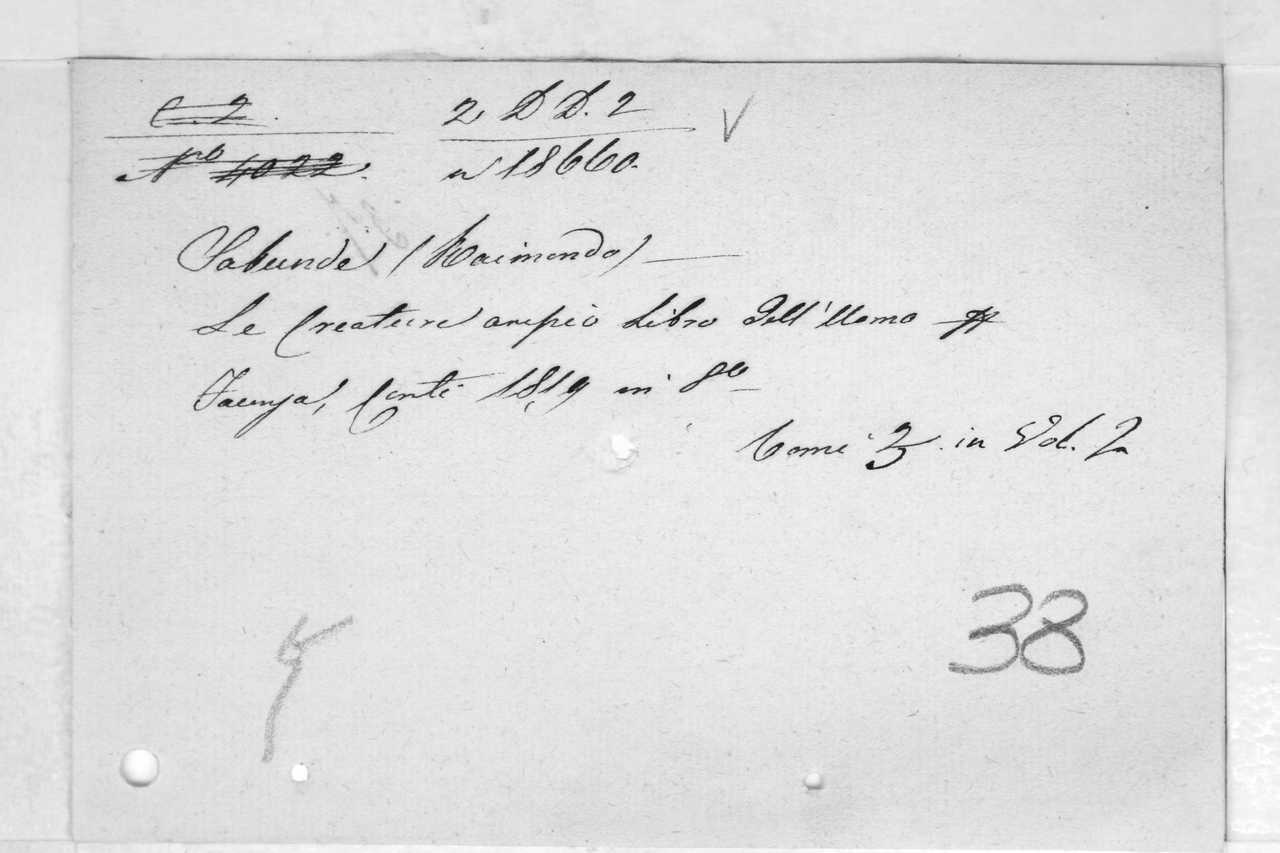 C. 2. 2 D D. 2
Nro 4022. n 18660.
Sabunde (Raimondo) —
Le Creature ampio Libro dell'Uomo
Faenza, Conti 1819 in 8vo
Tomi 3. in Vol. 2
38